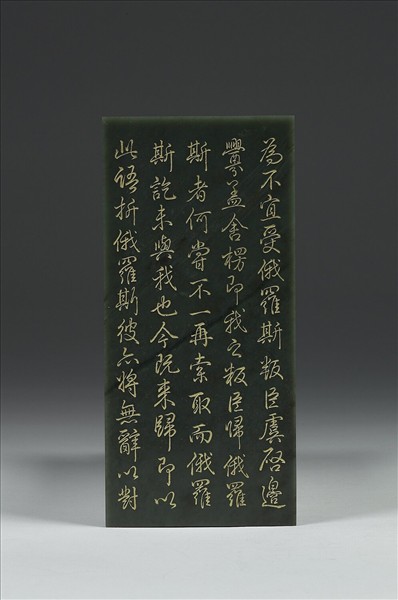 為不宜受俄羅斯叛臣虞啓邊
釁盖舍楞即我之叛臣歸俄羅
斯者何嘗不一再索取而俄羅
斯訖未與我也今既来歸即以
此語折俄羅斯彼亦將無辭以對